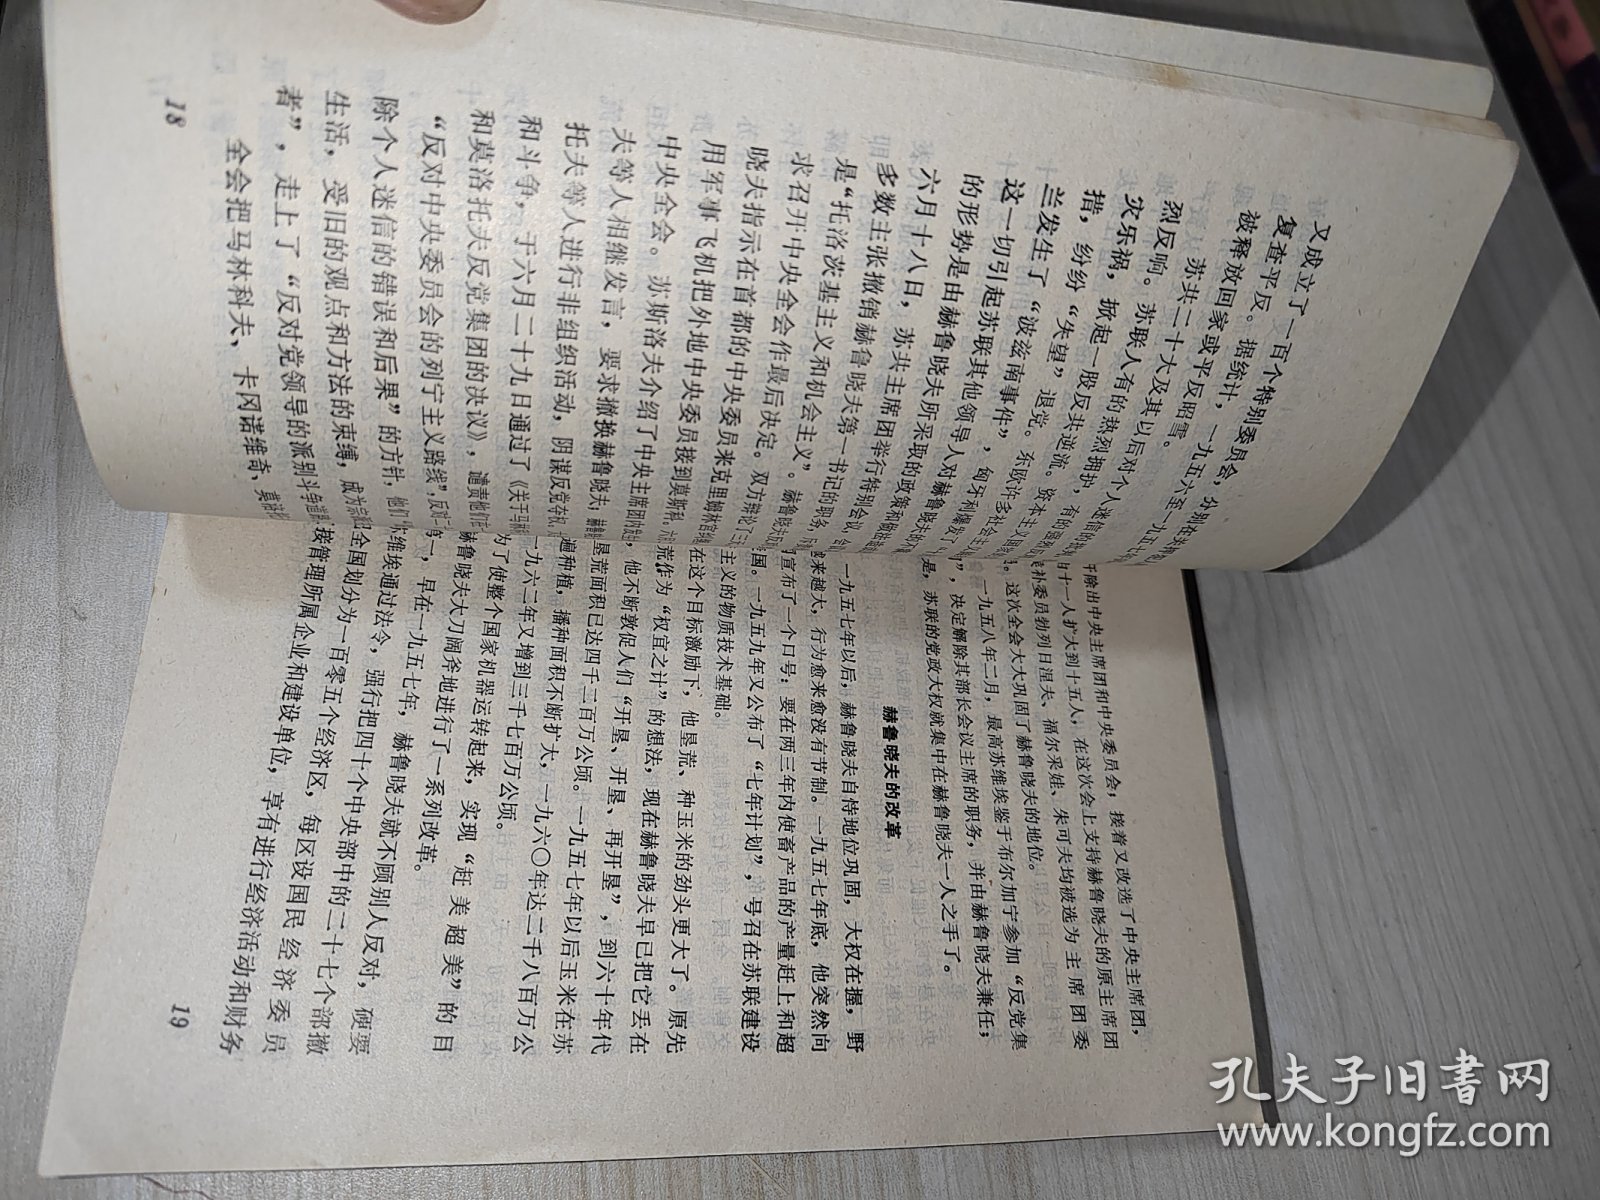 又成立了一百个特别委员会，分别在
复查平反。据统计，一九五六至一九五七
被释放回家或平反昭雪。
苏共二十大及其以后对个人迷信的
烈反响。苏联人有的热烈拥护，有的
灾乐祸，掀起一股反共逆流。资本主义
措，纷纷“失望”退党。东欧许多社会主义
兰发生了“波兹南事件”，匈牙利爆发了
这一切引起苏联其他领导人对赫鲁晓夫的
的形势是由赫鲁晓夫所采取的政策和
六月十八日，苏共主席团举行特别会议，
多数主张撤销赫鲁晓夫第一书记的职务，
是“托洛茨基主义和机会主义”。赫鲁晓夫
求召开中央全会作最后决定。双方辩论了
晓夫指示在首都的中央委员来克里姆林宫
用军事飞机把外地中央委员接到莫斯科。
中央全会。苏斯洛夫介绍了中央主席团内
夫等人相继发言，要求撤换赫鲁晓夫；
托夫等人进行非组织活动，阴谋反党夺权。
和斗争，于六月二十九日通过了《关于马林
和莫洛托夫反党集团的决议》，谴责他们
“反对中央委员会的列宁主义路线”，反对
除个人迷信的错误和后果”的方针，他们
生活，受旧的观点和方法的束缚，成为宗
者”，走上了“反对党领导的派别斗争
全会把马林科夫、卡冈诺维奇、莫洛
18
除出中央主席团和中央委员会，接着又改选了中央主席团，
十一人扩大到十五人，在这次会上支持赫鲁晓夫的原主席团
补委员勃列日涅夫、福尔采娃、朱可夫均被选为主席团委
。这次全会大大巩固了赫鲁晓夫的地位。
一九五八年二月，最高苏维埃鉴于布尔加宁参加“反党集
”，决定解除其部长会议主席的职务，并由赫鲁晓夫兼任；
是，苏联的党政大权就集中在赫鲁晓夫一人之手了。
赫鲁晓夫的改革
一九五七年以后，赫鲁晓夫自恃地位巩固，大权在握，野
来越大，行为愈来愈没有节制。一九五七年底，他突然向
宣布了一个口号：要在两三年内使畜产品的产量赶上和超
国。一九五九年又公布了“七年计划”，号召在苏联建设
主义的物质技术基础。
在这个目标激励下，他垦荒、种玉米的劲头更大了。原先
荒作为“权宜之计”的想法，现在赫鲁晓夫早已把它丢在
，他不断敦促人们“开垦、开垦、再开垦”，到六十年代
垦荒面积已达四千二百万公顷。一九五七年以后玉米在苏
遍种植，播种面积不断扩大，一九六〇年达二千八百万公
一九六二年又增到三千七百万公顷。
为了使整个国家机器运转起来，实现“赶美超美”的目
赫鲁晓夫大刀阔斧地进行了一系列改革。
一，早在一九五七年，赫鲁晓夫就不顾别人反对，硬要
维埃通过法令，强行把四十个中央部中的二十七个部撤
全国划分为一百零五个经济区，每区设国民经济委员
接管理所属企业和建设单位，享有进行经济活动和财务
19
孔夫子旧书网
www.kongfz.com